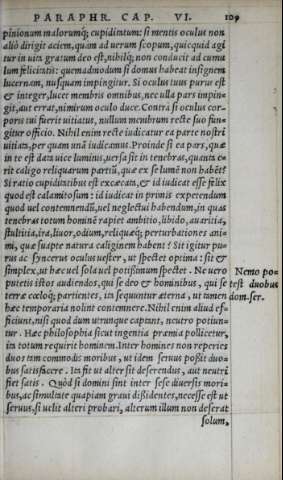 PARAPHR. CAP. VI. 109
pinionum malorumq́; cupiditatum: si mentis oculus non
aliò dirigit aciem, quàm ad uerum scopum, quicquid agi
tur in uita gratum deo est, nihilq́; non conducit ad cumu
lum felicitatis: quemadmodum si domus habeat insignem
lucernam, nusquam impingitur. Si oculus tuus purus est
& integer, lucet membris omnibus, nec ulla pars impin-
git, aut errat, nimirum oculo duce. Contrà si oculus cor-
poris tui fuerit uitiatus, nullum membrum rectè suo fun-
gitur officio. Nihil enim rectè iudicatur ea parte nostri
uitiata, per quam unā iudicamus. Proinde si ea pars, quæ
in te est data uice luminis, uersa sit in tenebras, quanta e-
rit caligo reliquarum partiū, quæ ex se lumē non habēt?
Si ratio cupiditatibus est excæcata, & id iudicat esse felix
quod est calamitosum: id iudicat in primis expetendum
quod uel contemnendū, uel neglectui habendum, in quas
tenebras totum hominē rapiet ambitio, libido, auaritia,
stultitia, ira, liuor, odium, reliquæq́; perturbationes ani-
mi, quæ suapte natura caliginem habent? Sit igitur pu-
rus ac syncerus oculus uester, ut spectet optima: sit &
simplex, ut hæc uel sola uel potissimum spectet. Ne uero
putetis istos audiendos, qui se deo & hominibus, qui se
terræ cœloq́; partientes, ita sequuntur æterna, ut tamen
hæc temporaria nolint contemnere. Nihil enim aliud ef-
ficiunt, nisi quod dum utrunque captant, neutro potiun-
tur. Hæc philosophia sicut ingentia præmia pollicetur,
ita totum requirit hominem. Inter homines non reperies
duos tam commodis moribus, ut idem seruus possit duo-
bus satisfacere. Ita fit ut alter sit deserendus, aut neutri
fiet satis. Quòd si domini sint inter sese diuersis mori-
bus, ac simultate quapiam graui dissidentes, necesse est ut
seruus, si uelit alteri probari, alterum illum non deserat
solum,
Nemo po-
test duobus
dom. ser.